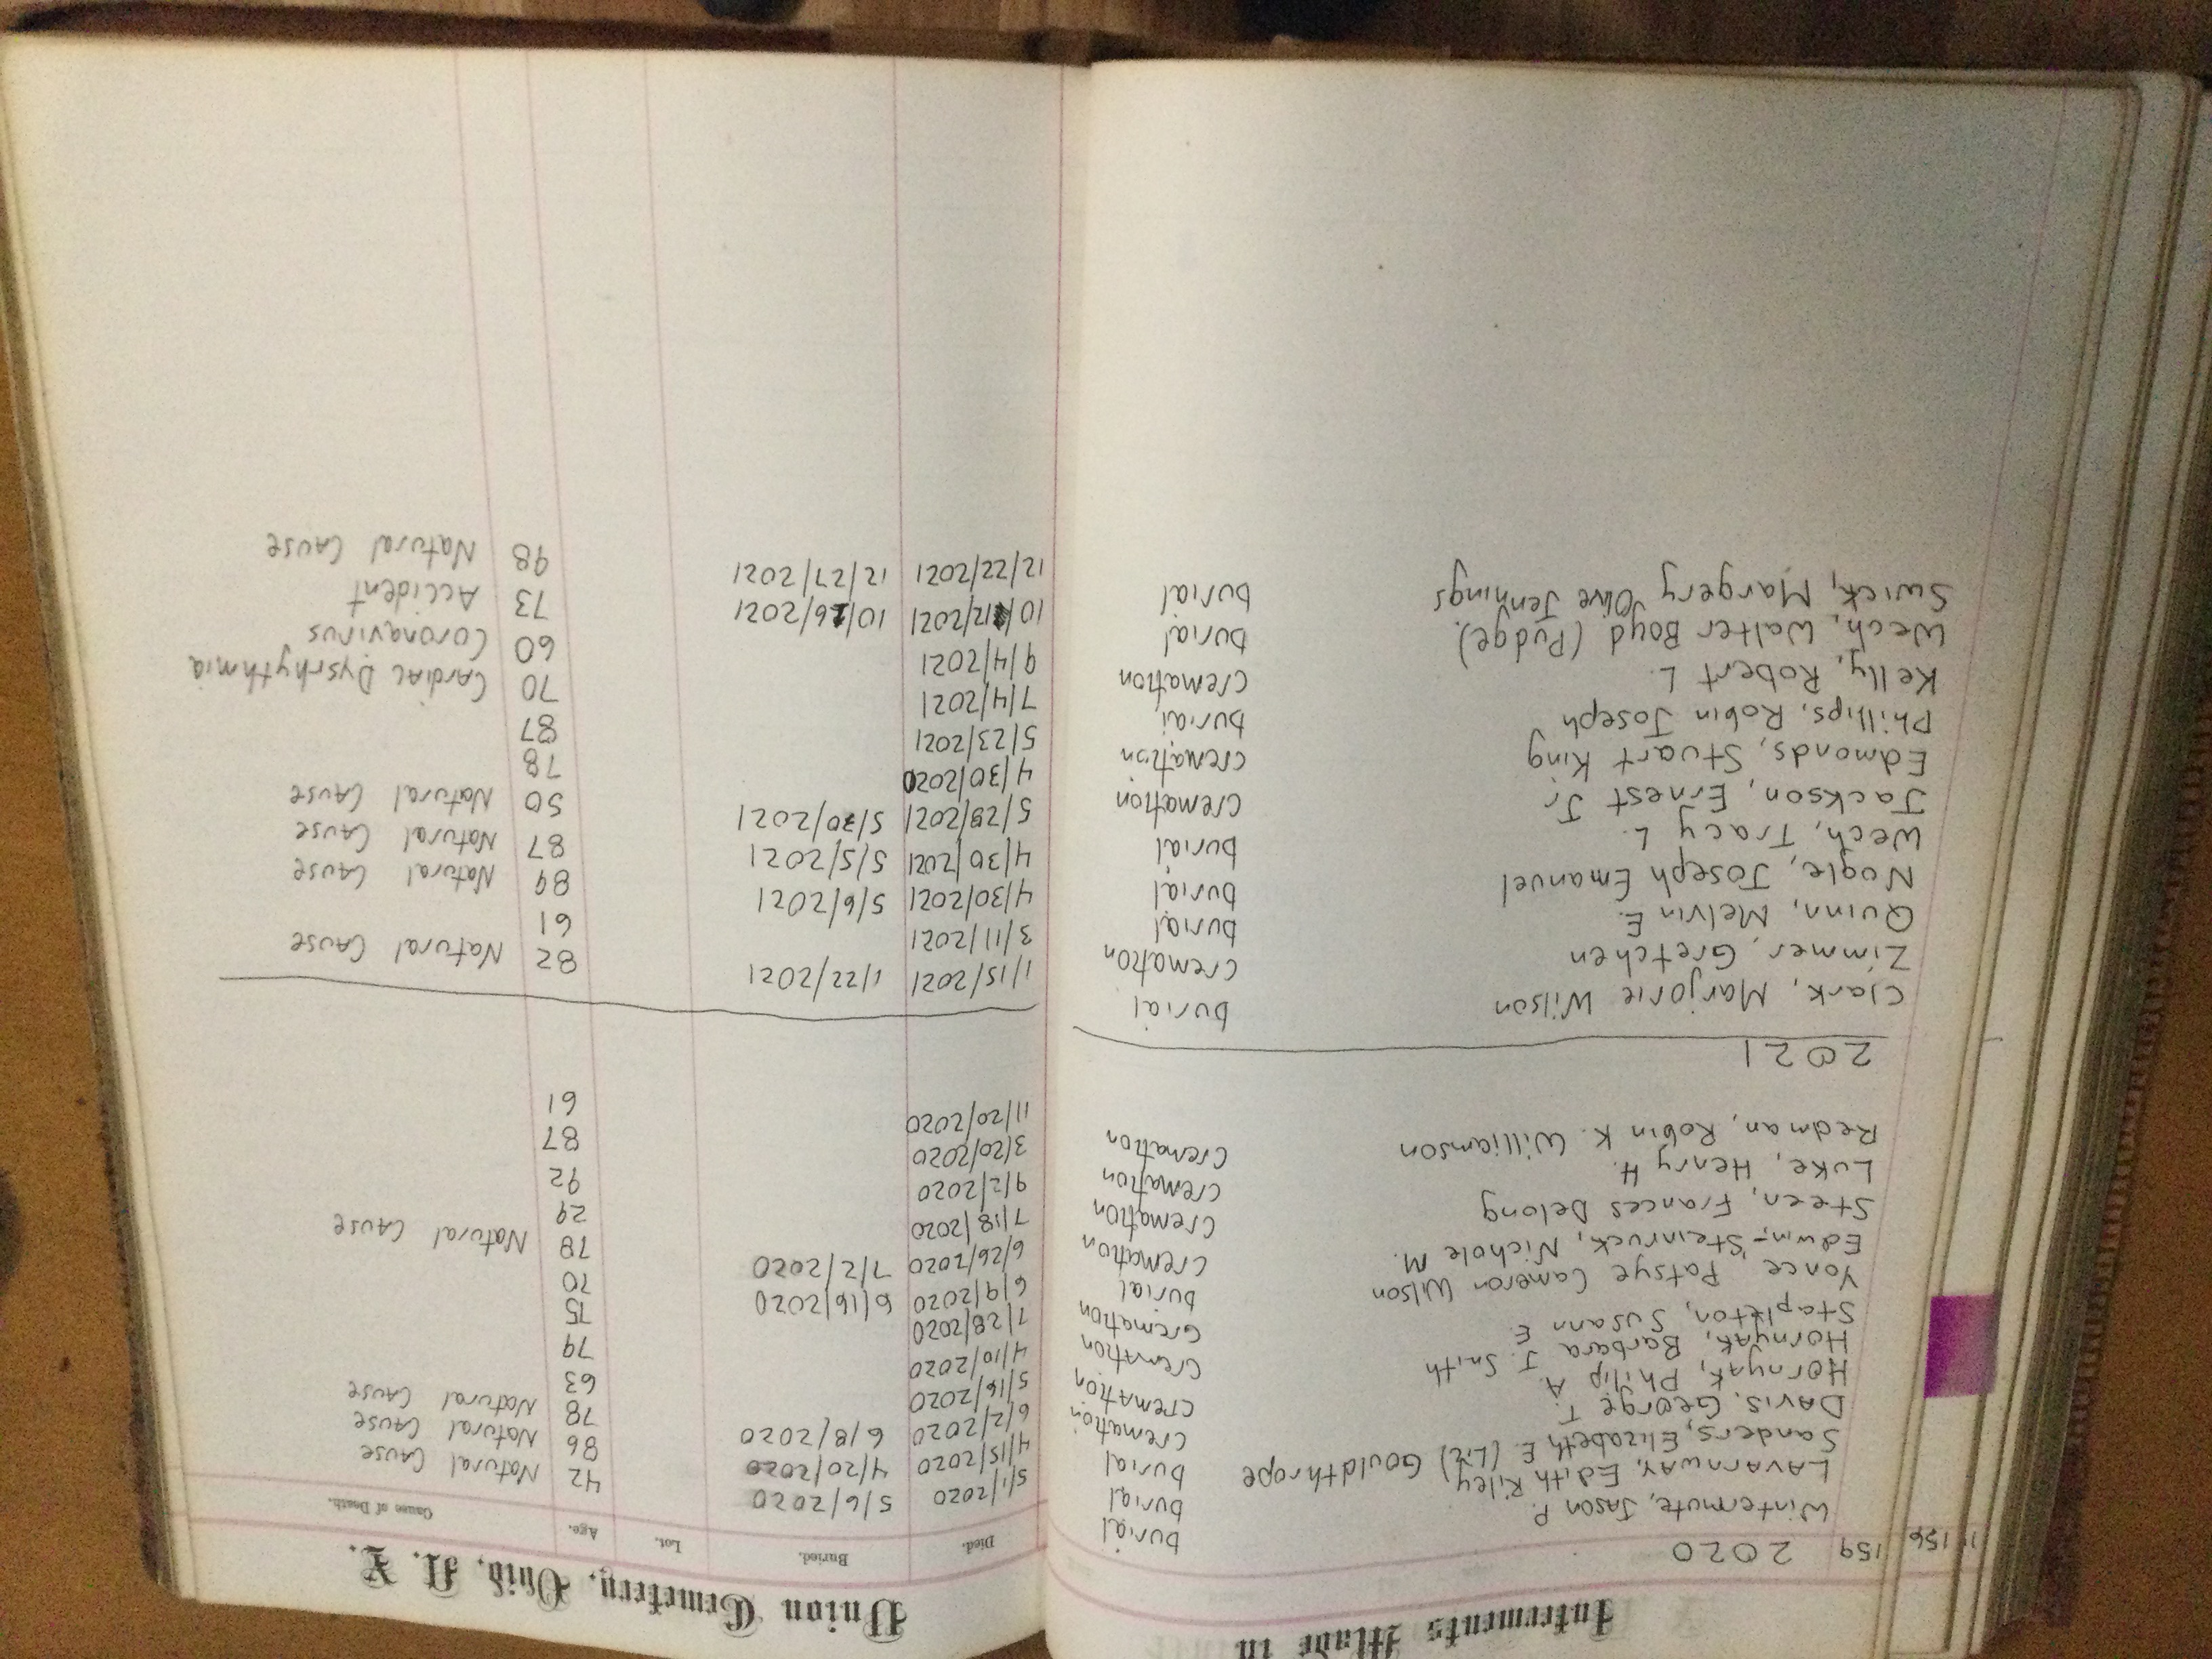 Interments Made in Union Cemetery, Ovid, N. Y.
156 159 2020 Died. Buried. Lot. Age. Cause of Death.
Wintermute, Jason P. burial 5/1/2020 5/6/2020 42 Natural Cause
Lavarnway, Edith Riley burial 4/15/2020 4/20/2020 86 Natural Cause
Sanders, Elizabeth E. (Liz) Gouldthrope burial 6/2/2020 6/8/2020 78 Natural Cause
Davis, George T. cremation 5/16/2020 63
Hornyak, Philip A. cremation 4/10/2020 79
Hornyak, Barbara J. Smith cremation 7/28/2020 75
Stapleton, Susann E. cremation 6/9/2020 6/16/2020 70
Yonce Patsye Cameron Wilson burial 6/26/2020 7/2/2020 78 Natural Cause
Edwin-Steinruck, Nichole M. cremation 7/18/2020 29
Steen, Frances Delong cremation 9/2/2020 92
Luke, Henry H. cremation 3/20/2020 87
Redman, Robin K. Williamson cremation 11/20/2020 61
2021
Clark, Marjorie Wilson burial 1/15/2021 1/22/2021 82 Natural Cause
Zimmer, Gretchen cremation 3/11/2021 61
Quinn, Melvin E. burial 4/30/2021 5/6/2021 89 Natural Cause
Nogle, Joseph Emanuel burial 4/30/2021 5/5/2021 87 Natural Cause
Wech, Tracy L. burial 5/28/2021 5/30/2021 50 Natural Cause
Jackson, Ernest Jr cremation 4/30/2020 78
Edmonds, Stuart King cremation 5/23/2021 87
Phillips, Robin Joseph burial 7/4/2021 70 Cardial Dysrhythmia
Kelly, Robert L. cremation 9/4/2021 60 Coronavirus
Wech, Walter Boyd (Pudge) burial 10/12/2021 10/26/2021 73 Accident
Swick, Margery Olive Jennings burial 12/22/2021 12/27/2021 98 Natural Cause